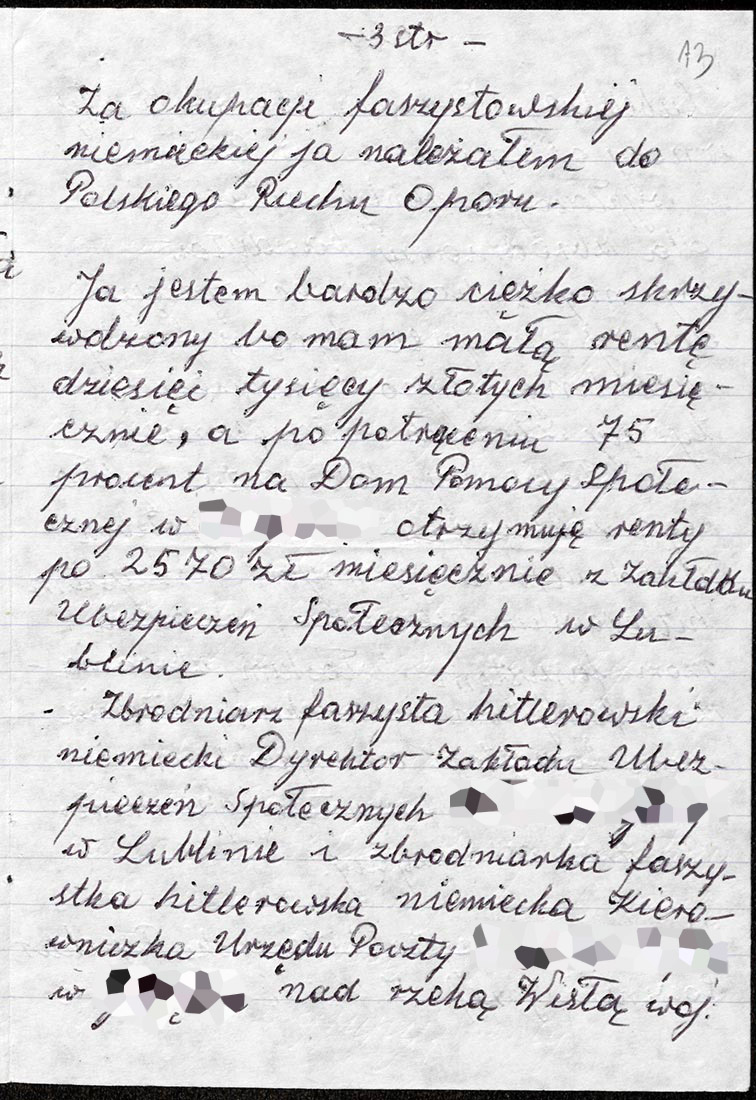 - 3 str -
13
Za okupacji faszystowskiej
niemieckiej ja należałem do
Polskiego Ruchu Oporu.
Ja jestem bardzo ciężko skrzy-
wdzony bo mam małą rentę
dziesięć tysięcy złotych miesię-
cznie, a po potrąceniu 75
procent na Dom Pomocy Społe-
cznej w otrzymuję renty
po 2570 zł miesięcznie z Zakładu
Ubezpieczeń Społecznych w Lu-
blinie.
Zbrodniarz faszysta hitlerowski
niemiecki Dyrektor Zakładu Ubez-
pieczeń Społecznych
w Lublinie i zbrodniarka faszy-
stka hitlerowska niemiecka Kiero-
wniczka Urzędu Poczty
w nad rzeką Wisłą woj.